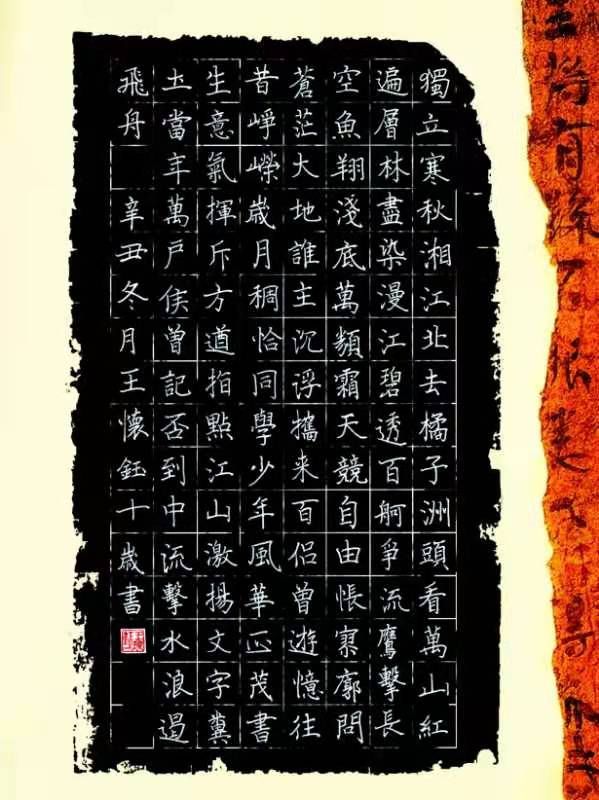 獨立寒秋湘江北去橘子洲頭看萬山紅
遍層林盡染漫江碧透百舸爭流鷹擊長
空魚翔淺底萬類霜天競自由悵寥廓問
蒼茫大地誰主沉浮攜来百侣曾遊憶往
昔崢嶸嵗月稠恰同學少年風華正茂書
生意氣揮斥方遒指點江山激揚文字糞
土當年萬戶侯曾記否到中流擊水浪遏
飛舟 辛丑冬月王懷鈺十歲書